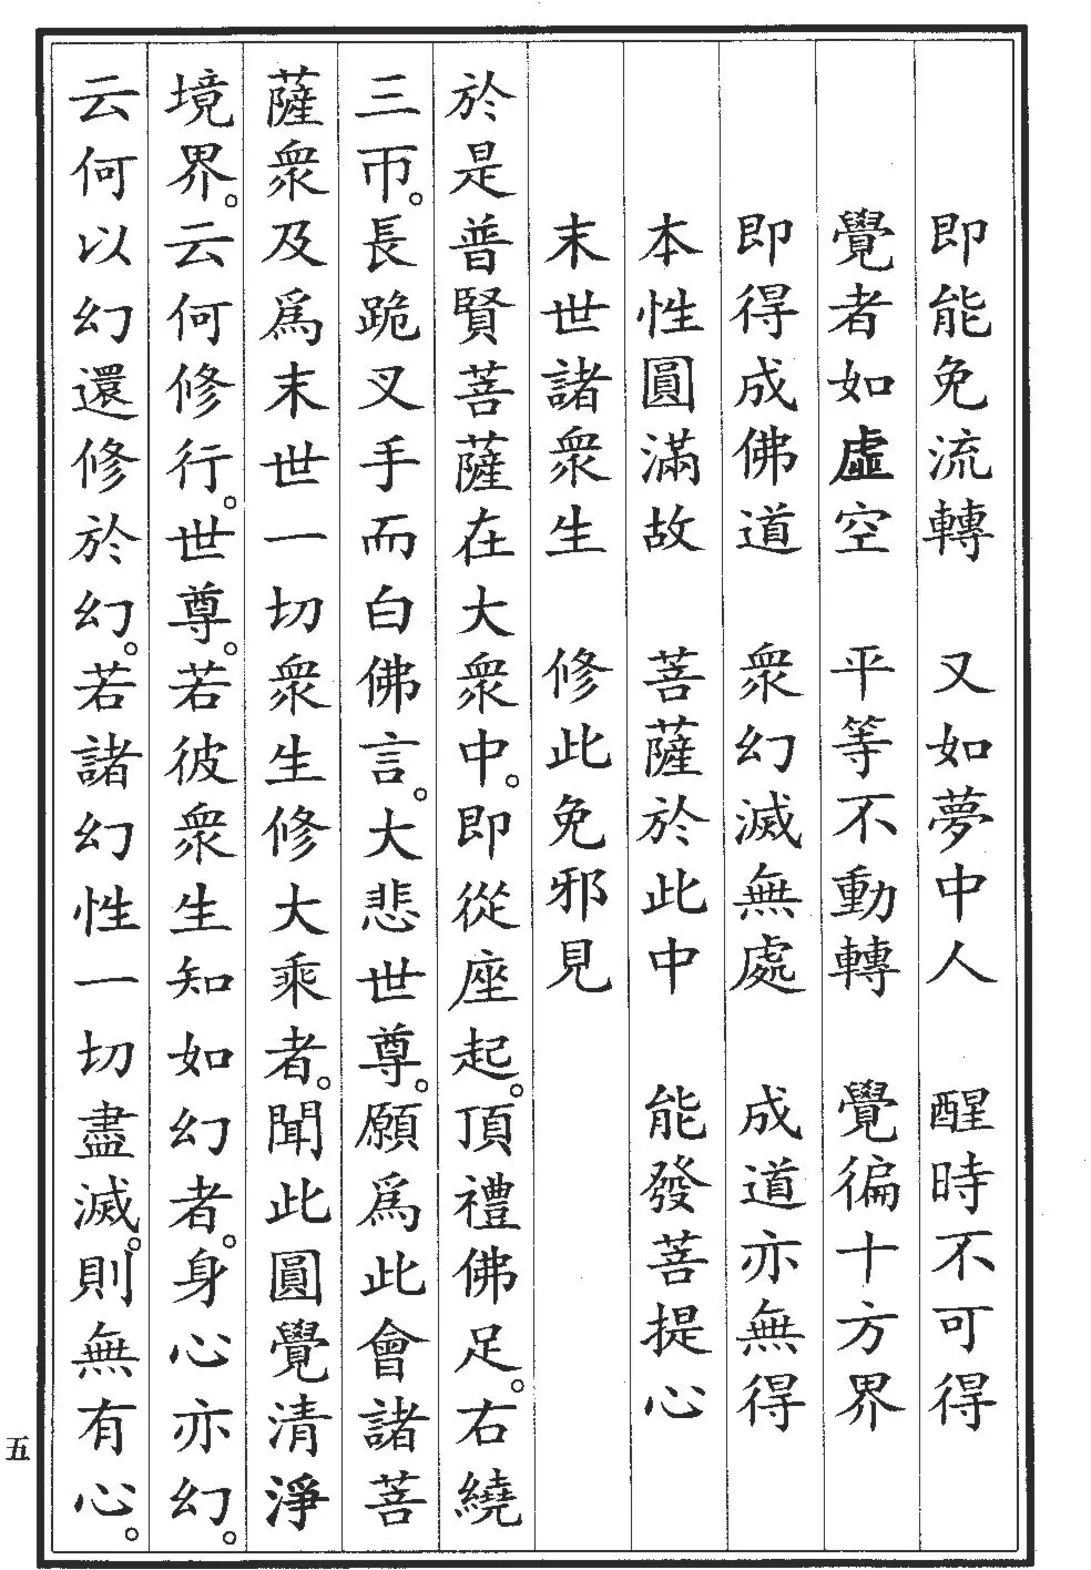 即能免流轉　又如夢中人　醒時不可得
覺者如虛空　平等不動轉　覺徧十方界
即得成佛道　眾幻滅無處　成道亦無得
本性圓滿故　菩薩於此中　能發菩提心
末世諸眾生　修此免邪見
於是普賢菩薩在大眾中。即從座起。頂禮佛足。右繞
三帀。長跪叉手而白佛言。大悲世尊。願爲此會諸菩
薩眾及爲末世一切眾生修大乘者。聞此圓覺清淨
境界。云何修行。世尊。若彼眾生知如幻者。身心亦幻。
云何以幻還修於幻。若諸幻性一切盡滅。則無有心。
五